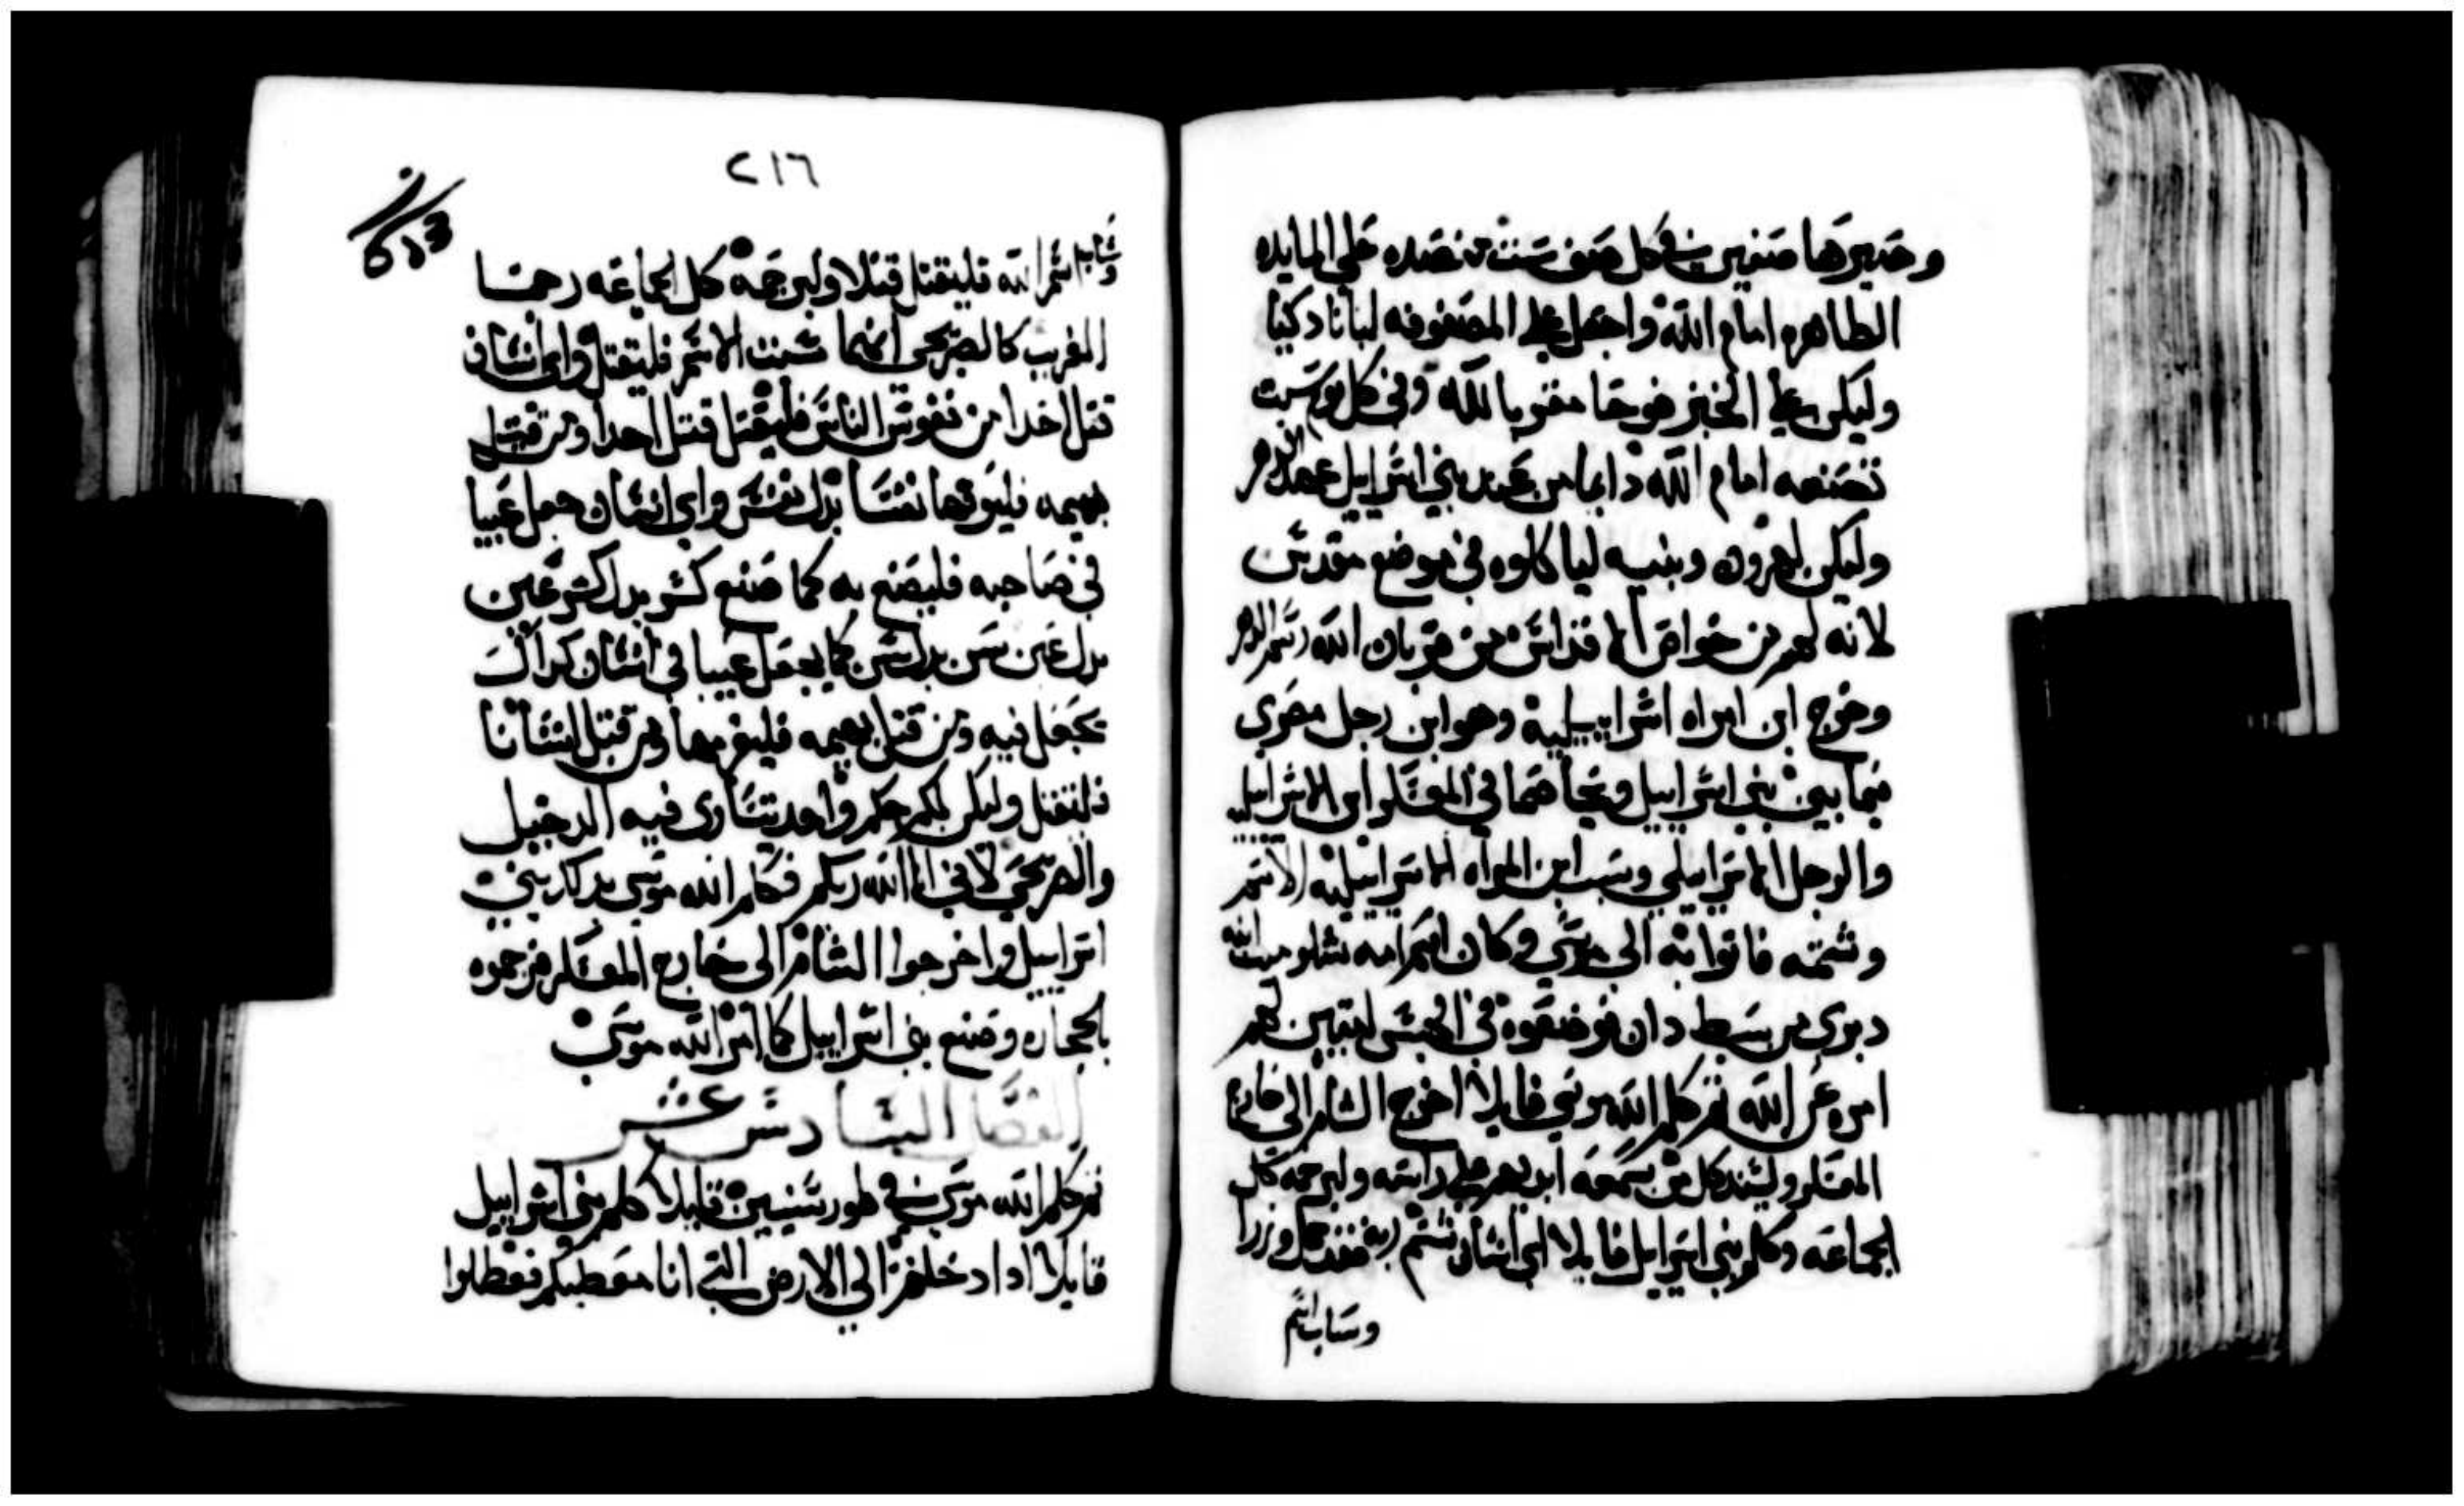 وصيرها صفين في كل صف ست من نضده على المايده
الطاهره امام الله واجعل على المصفوفه لبانا دكيا
وليكن على الخبز عوضا مقربا لله وفي كل يوم سبت
تصنعه امام الله دايما من عند بني اسراييل عهد الدهر
وليكن لهرون وبنيه لياكلوه في موضع مقدس
لانه لهم من خواص الاقداس من قربان الله رسم الدهر
وخرج ابن امراه اسراييلية وهو ابن رجل مصري
فيما بين بني اسراييل وتخاصما في المعسكر ابن الاسراييليه
والرجل الاسراييلي وسب ابن المراه الاسراييليه الاسم
وشتمه فاتوا به الى موسي وكان اسم امه شلوميت ابنه
دبري من سبط دان فوضعوه في الحبس ليتبين لهم
امره عن الله ثم كلم الله موسي قايلا اخرج الشاتم الى خارج
المعسكر وليسند كل من سمعه ايديهم على راسه وليرجمه كل
الجماعه وكلم بني اسراييل قايلا اي انسان شتم ربه فقد حمل وزرا
وساب اسم
٢١٦
وساب اسم الله فليقتل قتلا وليرجمه كل الجماعه رجما
الغريب كالصريحي انهما شتمت الاسم فليقتل واي انسان
قتل احدا من نفوس الناس فليقتل قتل احدا ومن قتل
بهيمه فليوديها نفسا بدل نفس واي انسان جعل عيبا
في صاحبه فليصنع به كما صنع كسر بدل كسر عين
بدل عين سن بدل سن كما يجعل عيبا في انسان كداك
يجعل فيه ومن قتل بهيمه فليغرمها ومن قتل انسانا
فليقتل وليكن لكم حكم واحد يتساوى فيه الدخيل
والصريحي لاني انا الله ربكم فكلم الله موسي بدلك بني
اسراييل واخرجوا الشاتم الى خارج المعسكر فرجموه
بالحجاره وصنع بني اسراييل كما امر الله موسي
الفصل السادس عشر
ثم كلم الله موسي في طور سينين قايلا كلم بني اسراييل
قايلا ادا دخلتم الى الارض التي انا معطيكم فعطلوا